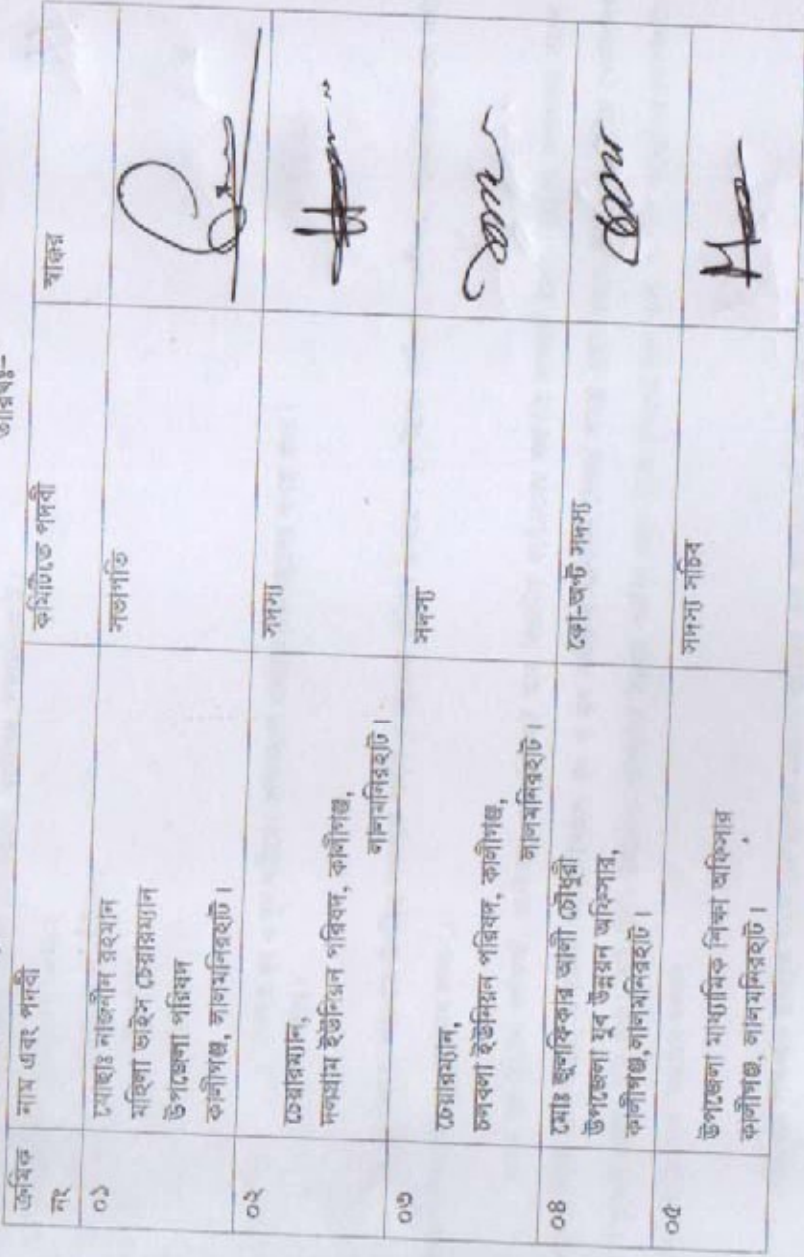 ক্রমিক নং
নাম এবং পদবী
কমিটিতে পদবী
স্বাক্ষর
০১
মোছাঃ নাজনীন রহমান
মহিলা ভাইস চেয়ারম্যান
উপজেলা পরিষদ
কালীগঞ্জ, লালমনিরহাট।
সভাপতি
০২
চেয়ারম্যান,
দলগ্রাম ইউনিয়ন পরিষদ, কালীগঞ্জ,
লালমনিরহাট।
সদস্য
০৩
চেয়ারম্যান,
চলবলা ইউনিয়ন পরিষদ, কালীগঞ্জ,
লালমনিরহাট।
সদস্য
০৪
মোঃ জুলফিকার আলী চৌধুরী
উপজেলা যুব উন্নয়ন অফিসার,
কালীগঞ্জ,লালমনিরহাট।
কো-অপ্ট সদস্য
০৫
উপজেলা মাধ্যমিক শিক্ষা অফিসার
কালীগঞ্জ, লালমনিরহাট।
সদস্য সচিব